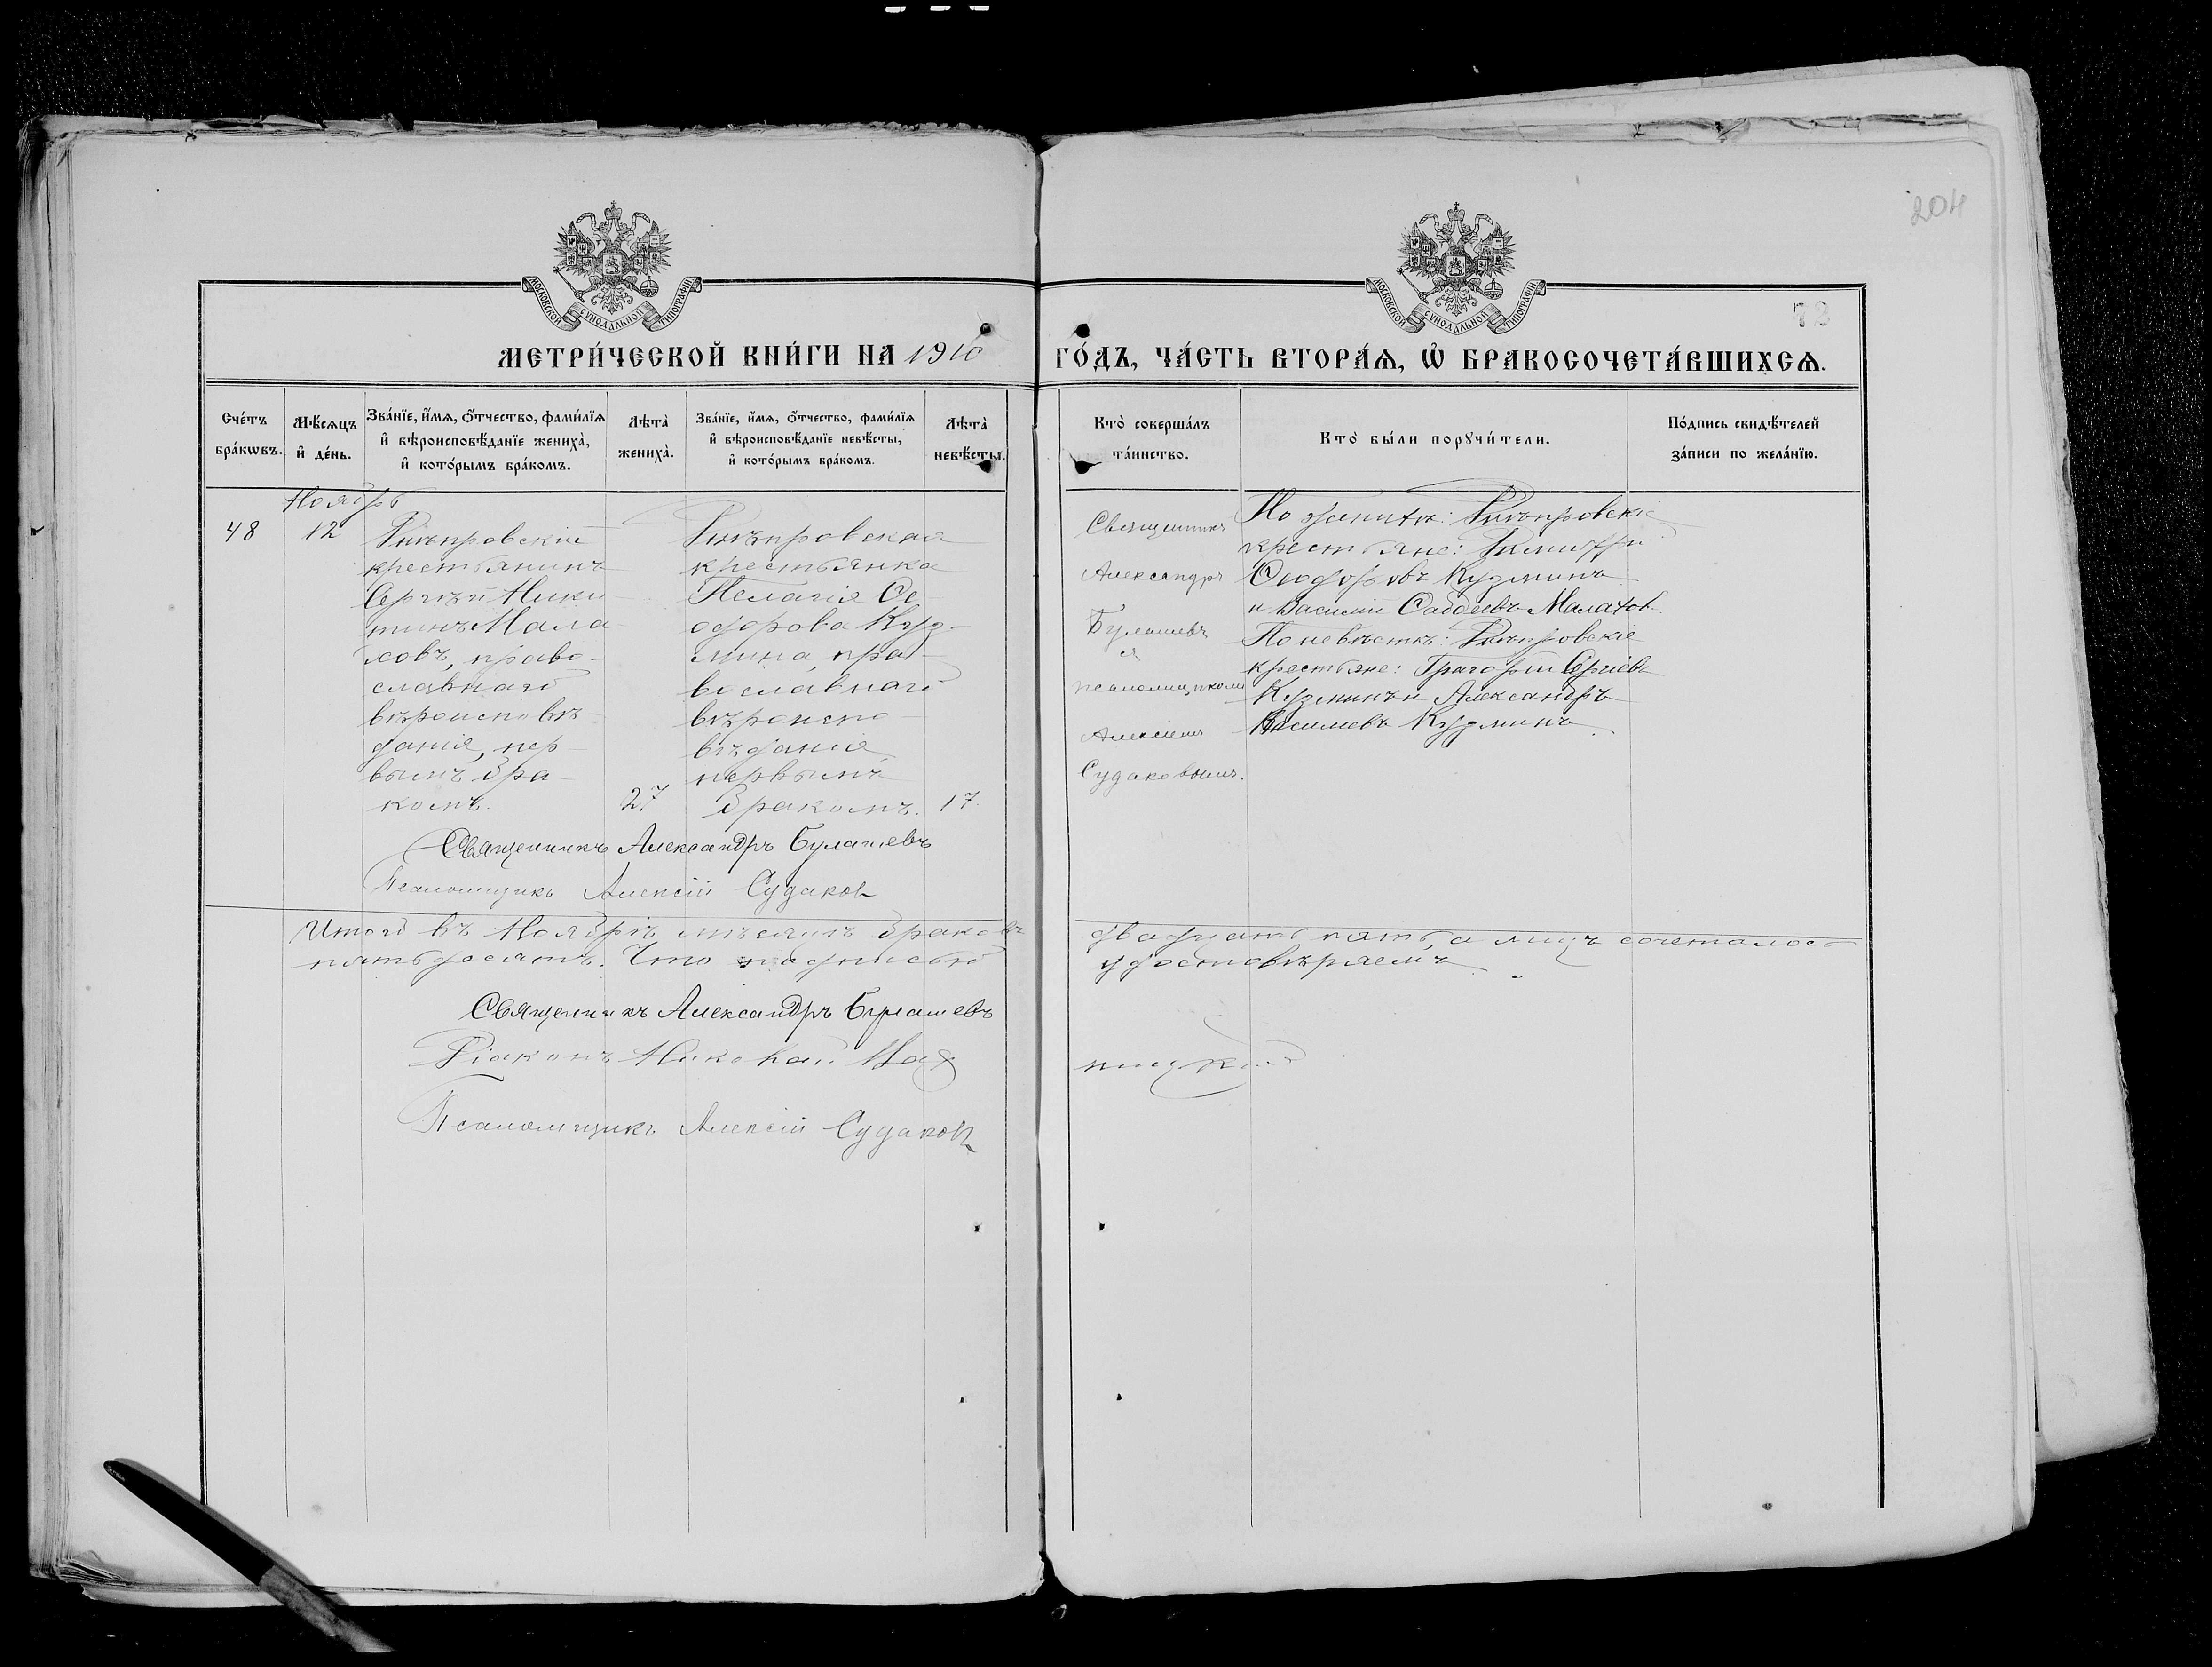 204
МОСКОВСКОЙ СѴНОДАЛЬНОЙ ТИПОГРАФІИ
МОСКОВСКОЙ СѴНОДАЛЬНОЙ ТИПОГРАФІИ
73
МЕТРИ́ЧЕСКОЙ КНИ́ГИ НА 1910 ГО́ДЪ, ЧА́СТЬ ВТОРА́Ѧ, Ѡ҆ БРАКОСОЧЕТА́ВШИХСѦ.
Сче́тъ бра́кѡвъ.
Мѣ́сѧцъ и҆ де́нь.
Зва́нїе, и҆́мѧ, ѻ҆́тчество, фами́лїѧ и҆ вѣроисповѣ́данїе жениха̀, и҆ кото́рымъ бра́комъ.
Лѣта̀ жениха̀.
Зва́нїе, и҆́мѧ, ѻ҆́тчество, фами́лїѧ и҆ вѣроисповѣ́данїе невѣ́сты, и҆ кото́рымъ бра́комъ.
Лѣта̀ невѣ́сты.
Кто̀ соверша́лъ та́инство.
Кто̀ бы́ли порꙋчи́тели.
По́дпись свидѣ́телей за́писи по жела́нїю.
Ноябрь
48
12
Днѣпровскій
крестьянинъ
Сергѣй Ники-
тинъ Мала-
ховъ, право-
славнаго
вѣроисповѣ-
данія, пер-
вымъ бра-
комъ.
27
Днѣпровская
крестьянка
Пелагія Ѳе-
одорова Куз-
мина, пра-
вославнаго
вѣроиспо-
вѣданія
первымъ
бракомъ.
17.
Священникъ
Александръ
Булашевъ
съ
псаломщикомъ
Алексіемъ
Судаковымъ.
По женихѣ: Днѣпровскіе
крестьяне: Димитрій
Ѳеодоровъ Кузминъ
и Василій Ѳаддеевъ Малахов.
По невѣстѣ: Днѣпровскіе
крестьяне: Григорій Сергіевъ
Кузминъ и Александръ
Василіевъ Кузминъ.
Священникъ Александръ Булашевъ
Псаломщикъ Алексій Судаков
Итого въ Ноябрѣ мѣсяцѣ браковъ двадцать пять, а лицъ сочеталось
пятьдесятъ. Что подписью удостовѣряемъ
Священникъ Александръ Булашевъ
Діаконъ Николай
Псаломщикъ Алексій Судаков